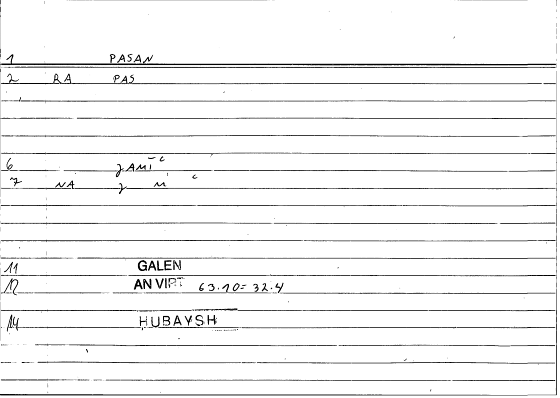 1 PASAN
2 RA PAS
6 ǧAMĪʿ
7 NA ǧ M ʿ
11 GALEN
12 AN VIRT 63.10= 32.4
14 HUBAYSH